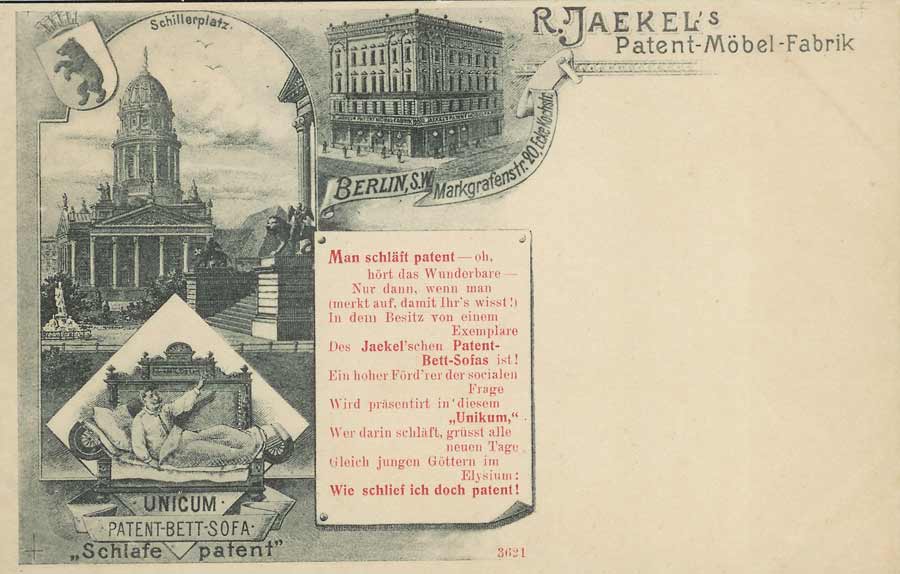 Schillerplatz.
R. JAEKEL's
Patent-Möbel-Fabrik
BERLIN, S.W. Markgrafenstr. 20, Ecke Kochstr.
Man schläft patent — oh,
hört das Wunderbare —
Nur dann, wenn man
(merkt auf, damit Ihr's wisst!)
In dem Besitz von einem
Exemplare
Des Jaekel'schen Patent-
Bett-Sofas ist!
Ein hoher Förd'rer der socialen
Frage
Wird präsentirt in diesem
„Unikum,“
Wer darin schläft, grüsst alle
neuen Tage
Gleich jungen Göttern im
Elysium:
Wie schlief ich doch patent!
UNICUM
PATENT-BETT-SOFA
„Schlafe patent“
3621